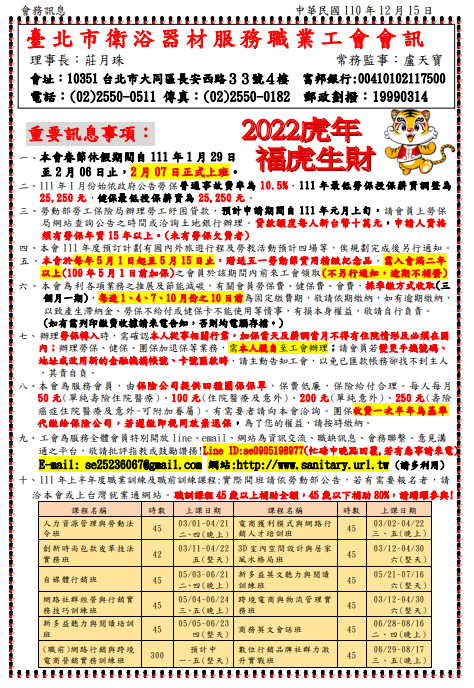 會務訊息 中華民國 110 年 12 月 15 日
臺北市衛浴器材服務職業工會會訊
理事長：莊月珠 常務監事：盧天寶
會址：10351 台北市大同區長安西路３３號４樓 富邦銀行:00410102117500
電話：(02)2550-0511 傳真：(02)2550-0182 郵政劃撥：19990314
重要訊息事項：
2022虎年
福虎生財
一、本會春節休假期間自 111 年 1 月 29 日
至 2 月 06 日止，2 月 07 日正式上班。
二、111 年 1 月份始依政府公告勞保普通事故費率為 10.5%，111 年最低勞保投保薪資調整為
25,250 元，健保最低投保薪資為 25,250 元。
三、勞動部勞工保險局辦理勞工紓困貸款，預計申請期間自 111 年元月上旬，請會員上勞保
局網站查詢公告之時間或洽詢土地銀行辦理。貸款額度每人新台幣十萬元，申請人資格
須有勞保年資 15 年以上。(未有勞保欠費者)
四、本會 111 年度預訂計劃有國內外旅遊行程及勞教活動預計四場等，俟規劃完成後另行通知。
五、本會於每年 5 月 1 日起至 5 月 15 日止，贈送五一勞動節實用精緻紀念品，需入會滿二年
以上(109 年 5 月 1 日前加保)之會員於該期間內前來工會領取(不另行通知，逾期不補發)
六、本會為利各項業務之推展及節能減碳，有關會員勞保費、健保費、會費，採季繳方式收取(三
個月一期)，每逢 1、4、7、10 月份之 10 日前為固定繳費期，敬請依期繳納，如有逾期繳納，
以致產生滯納金、勞保不給付或健保卡不能使用等情事，有損本身權益，敬請自行負責。
(如有需列印繳費收據請來電告知，否則均電腦存檔。)
七、辦理勞保轉入時，需確認本人從事相關行業，加保當天及薪調當月不得有住院情形及必須在國
內；辦理勞保、健保、團保加退保等業務，需本人親自至工會辦理；請會員若變更手機號碼、
地址或改用新的金融機構帳號、卡號匯款時，請主動告知工會，以免已匯款帳務卻找不到主人
，其責自負。
八、本會為服務會員，由保險公司提供四種團保保單，保費低廉，保險給付合理。每人每月
50 元(單純壽險住院醫療)、100 元(住院醫療及意外)、200 元(單純意外)、250 元(壽險
癌症住院醫療及意外-可附加眷屬)。有需要者請向本會洽詢。團保收費一次半年為基準
代繳給保險公司，若遲繳即視同放棄退保，為了您的權益，請按時繳納。
九、工會為服務全體會員特別開放 line、email、網站為資訊交流、職缺訊息、會務聯繫、意見溝
通之平台，敬請批評指教或鼓勵讚揚!Line ID:se0905198977(忙線中晚點回覆,若有急事請來電)
E-mail: se25236067@gmail.com 網站:http://www.sanitary.url.tw (請多利用)
十、111 年上半年度職業訓練及職前訓練課程;實際開班請依勞動部公告，若有需要報名者，請
洽本會或上台灣就業通網站。職訓課程 45 歲以上補助全額，45 歲以下補助 80%，請踴躍參與!
課程名稱 時數 上課日期 課程名稱 時數 上課日期
人力資源管理與勞動法令班 45 03/01-04/21 二、四(晚上) 電商獲利模式與網路行銷人才培訓班 45 03/02-04/22 三、五(晚上)
創新時尚包款皮革技法實務班 42 03/11-04/22 五(整天) 3D 室內空間設計與居家風水格局班 45 03/12-04/30 六(整天)
自媒體行銷班 45 05/03-06/21 二、四(晚上) 新多益英文聽力與閱讀訓練班 45 05/21-07/16 六(整天)
網路社群經營與行銷實務技巧訓練班 45 05/04-06/24 三、五(晚上) 跨境電商與物流管理實務班 45 03/12-04/30 六(整天)
新多益聽力與閱讀培訓班 45 05/05-06/23 四(整天) 商務英文會話班 45 06/28-08/16 二、四(晚上)
(職前)網路行銷與跨境電商營銷實務訓練班 300 預計中 一-五(整天) 數位行銷品牌社群力激升實戰班 45 06/29-08/17 三、五(晚上)